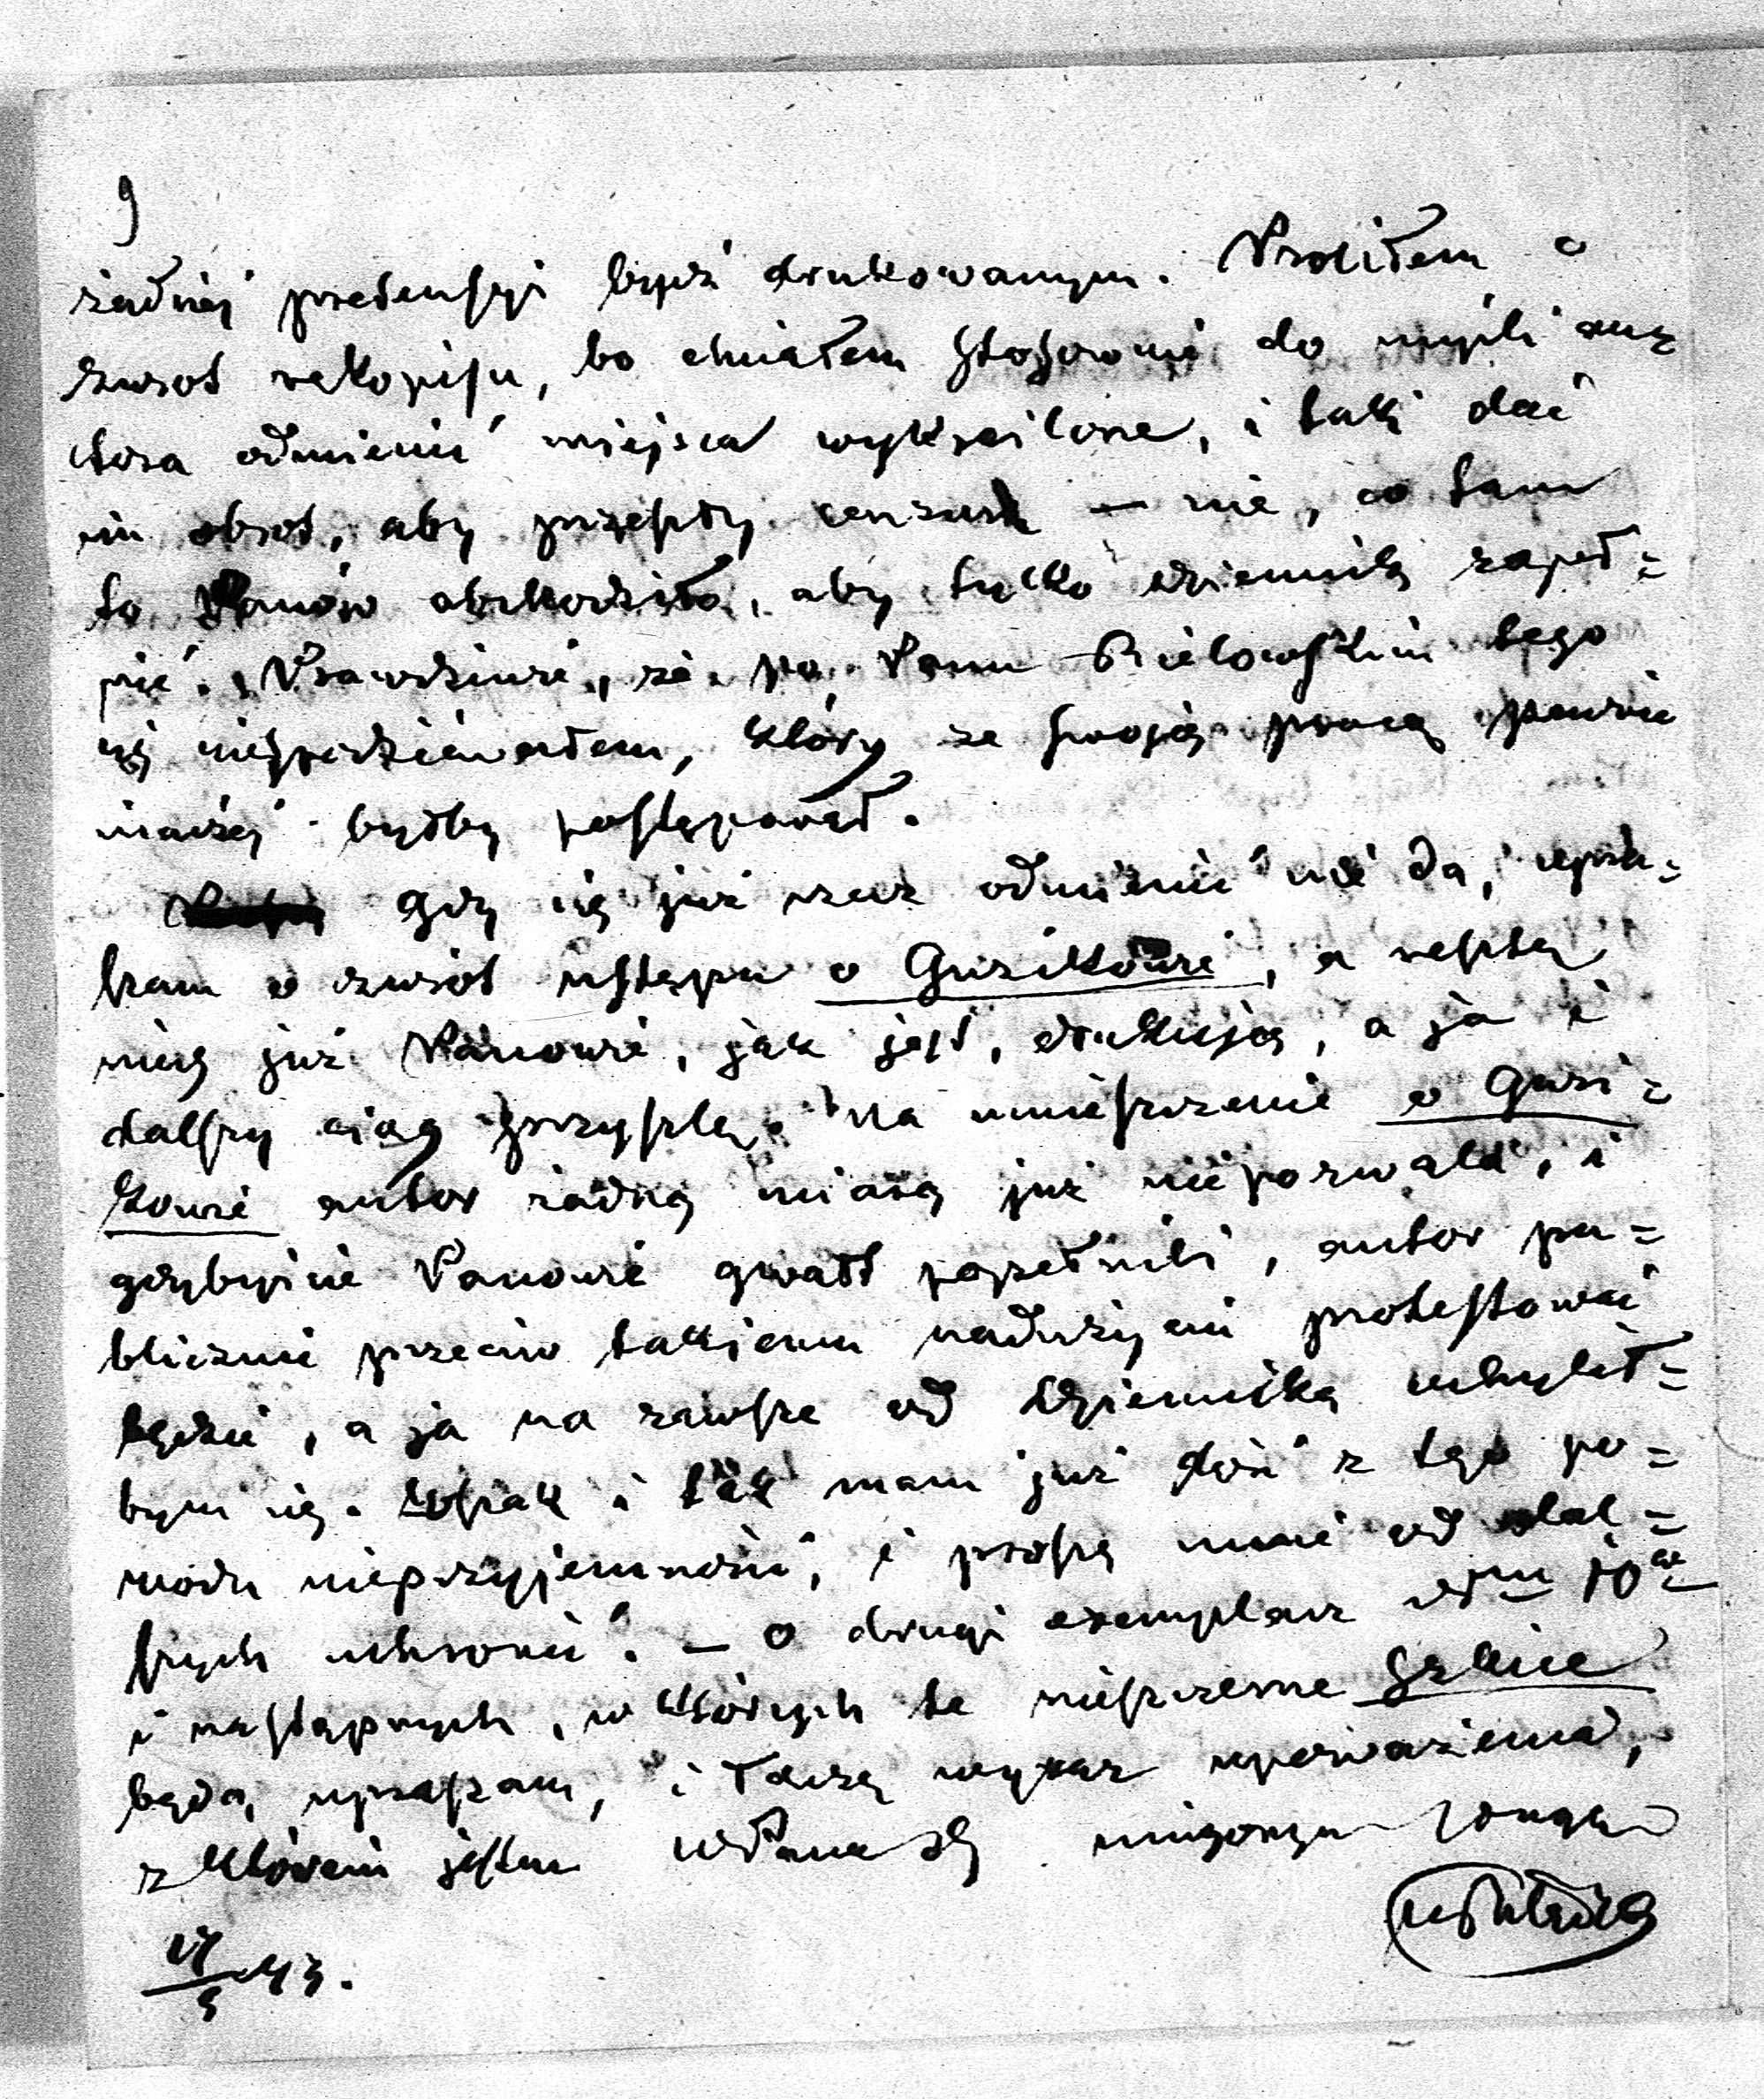 9
żadnéj pretensyi bydź drukowanym. Prosiłem o
zwrot rękopisu, bo chciałem stosownie do myśli au=
tora odmienić miejsca wykreślone, i taki dać
im obrot, aby przeszły cenzurę — nie, co tam
to Panów obchodziło, aby tylko dziennik zapeł=
nić. Prawdziwie, że po Panu Bielowskim tego
się niespodziéwałem, który ze swoją pracą pewnie
inaczéj byłby postępował.
Gdy się już rzecz odmienić nie da, upra=
szam o zwrot ustępu o Guzikowie, a resztę
niech już Panowie, jak jest, drukują, a ja i
dalszy ciąg przyszlę. Na umieszczenie o Guzi=
kowie autor żadną miarą już niepozwala, i
gdybyście Panowie gwałt popełnili, autor pu=
blicznie przeciw takiemu nadużyciu protestować
będzie, a ja na zawsze od Dziennika uchylił=
bym się. Wszak i tak mam już dość z tego po=
wodu nieprzyjemności, i proszę mnie od dal=
szych uchronić. — O drugi exemplarz
i następnych, w których te nieszczesne Szkice
będą, upraszam, i łączę wyraz upoważenia,
z którém jestem
43.